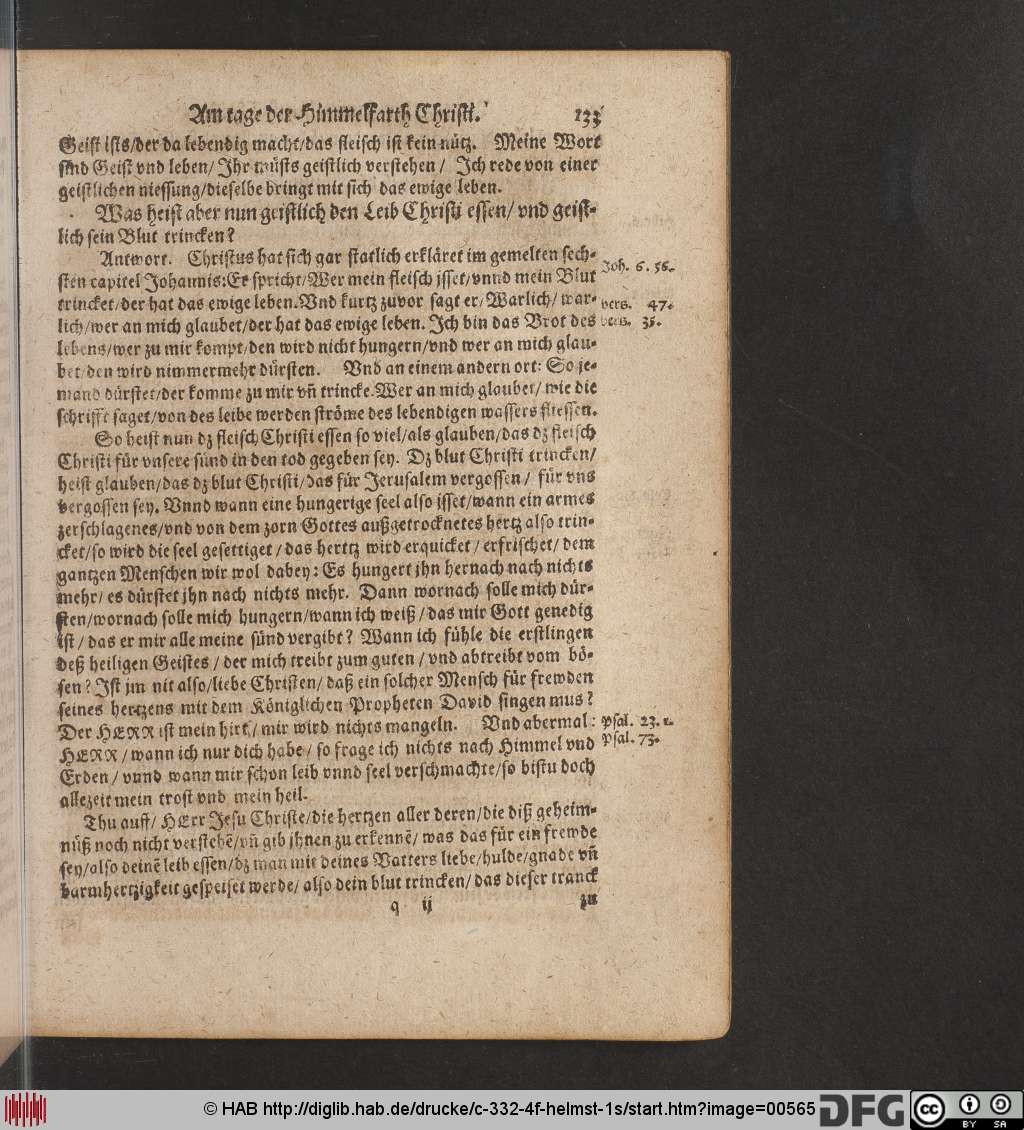 Am tage der Himmelfarth Christi. 133
Geist ists/der da lebendig macht/das fleisch ist kein nütz. Meine Wort
sind Geist vnd leben/ Ihr müsts geistlich verstehen/ Ich rede von einer
geistlichen niessung/dieselbe bringt mit sich das ewige leben.
Was heist aber nun geistlich den Leib Christi essen/ vnd geist-
lich sein Blut trincken?
Antwort. Christus hat sich gar statlich erkläret im gemelten sech-
sten capitel Johannis: Er spricht/Wer mein fleisch isset/vnnd mein Blut
Joh. 6. 56.
trincket/der hat das ewige leben. Vnd kurtz zuvor sagt er/ Warlich/ war-
vers. 47.
lich/wer an mich glaubet/der hat das ewige leben. Ich bin das Brot des
vers. 35.
lebens/wer zu mir kompt/den wird nicht hungern/vnd wer an mich glau-
bet/den wird nimmermehr dürsten. Vnd an einem andern ort: So je-
mand dürstet/der komme zu mir vñ trincke. Wer an mich glaubet/ wie die
schrifft saget/von des leibe werden ströme des lebendigen wassers fliessen.
So heist nun dz fleisch Christi essen so viel/als glauben/das dz fleisch
Christi für vnsere sünd in den tod gegeben sey. Dz blut Christi trincken/
heist glauben/das dz blut Christi/das für Jerusalem vergossen/ für vns
vergossen sey. Vnnd wann eine hungerige seel also isset/wann ein armes
zerschlagenes/vnd von dem zorn Gottes außgetrocknetes hertz also trin-
cket/so wird die seel gesettiget/ das hertz wird erquicket/ erfrischet/ dem
gantzen Menschen wir wol dabey: Es hungert jhn hernach nach nichts
mehr/ es dürstet jhn nach nichts mehr. Dann wornach solle mich dür-
sten/wornach solle mich hungern/wann ich weiß/ das mir Gott genedig
ist/ das er mir alle meine sünd vergibt? Wann ich fühle die erstlingen
deß heiligen Geistes/ der mich treibt zum guten/ vnd abtreibt vom bö-
sen? Ist jm nit also/liebe Christen/ daß ein solcher Mensch für frewden
seines hertzens mit dem Königlichen Propheten David singen mus?
Der HERR ist mein hirt/ mir wird nichts mangeln. Vnd abermal:
Psal. 23. 1.
HERR/ wann ich nur dich habe/ so frage ich nichts nach Himmel vnd
Psal. 73.
Erden/ vnnd wann mir schon leib vnnd seel verschmachte/so bistu doch
allezeit mein trost vnd mein heil.
Thu auff/ HErr Jesu Christe/die hertzen aller deren/die diß geheim-
nüß noch nicht verstehē/vñ gib jhnen zu erkennē/ was das für ein frewde
sey/also deinē leib essen/dz man mit deines Vatters liebe/hulde/gnade vñ
barmhertzigkeit gespeiset werde/ also dein blut trincken/ das dieser tranck
q ij zu
© HAB http://diglib.hab.de/drucke/c-332-4f-helmst-1s/start.htm?image=00565 DFG cc BY SA